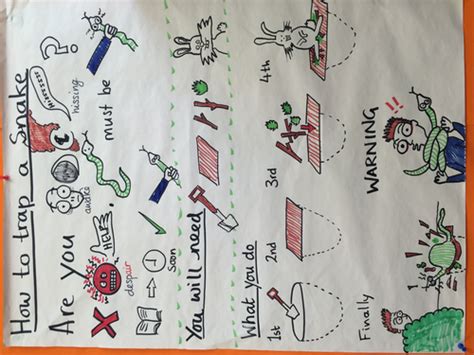 How to trap a snake
hissing
awake
Are you here, must be
despair
Soon
You will need
What you do
1st 2nd 3rd 4th
Finally WARNING !!